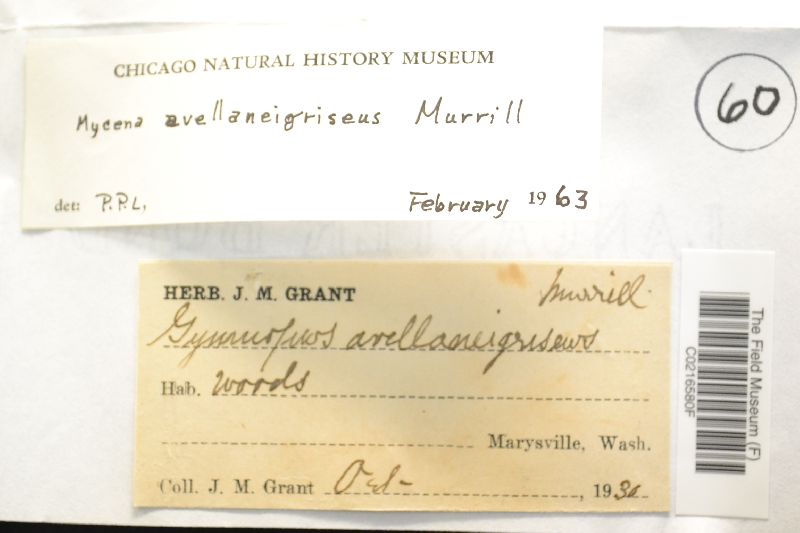 CHICAGO NATURAL HISTORY MUSEUM
Mycena avellaneigriseus Murrill
det: P.P.L, February 1963
60
HERB. J. M. GRANT Murrill
Gymnopus avellaneigriseus
Hab. woods
Marysville, Wash.
Coll. J. M. Grant Oct- , 1930
The Field Museum (F)
C0216580F